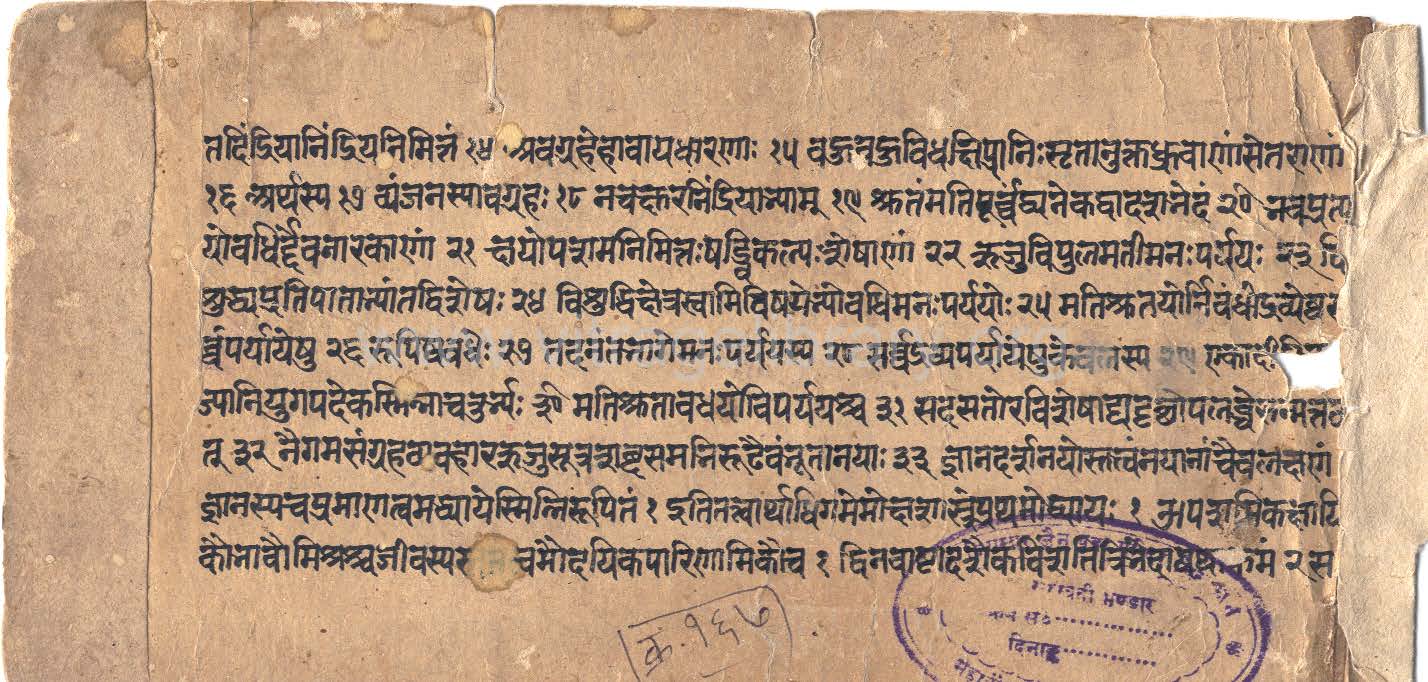 तदिंद्रियानिंद्रियनिमित्तं १४ अवग्रहेहावायधारणाः १५ वहुवहुविधक्षिप्रानिःसृतानुक्तध्रुवाणांसेतराणां
१६ अर्थस्य १७ व्यंजनस्यावग्रहः १८ नचक्षुरनिंद्रियाभ्याम् १९ श्रुतंमतिपूर्व्वंद्व्यनेकद्वादशभेदं २० भवप्रत्य
योवधिर्द्देवनारकाणां २१ क्षयोपशमनिमित्तःषड्विकल्पःशेषाणां २२ ऋजुविपुलमतीमनःपर्ययः २३ वि
शुद्ध्यप्रतिपाताभ्यांतद्विशेषः २४ विशुद्धिक्षेत्रस्वामिविषयेभ्योवधिमनःपर्यययोः २५ मतिश्रुतयोर्निवंधोद्रव्येष्वस
र्व्वपर्यायेषु २६ रूपिष्ववधेः २७ तदनंतभागेमनःपर्ययस्य २८ सर्व्वद्रव्यपर्यायेषुकेवलस्य २९ एकादीनि
ज्यानियुगपदेकस्मिन्नाचतुर्भ्यः ३० मतिश्रुतावधयोविपर्ययश्च ३१ सदसतोरविशेषाद्यदृच्छोपलब्धेरुन्मत्तव
त् ३२ नैगमसंग्रहव्यवहारऋजुसूत्रशब्दसमभिरूढैवंभूतानयाः ३३ ज्ञानदर्शनयोस्तत्वंनयानांचैवलक्षणं
ज्ञानस्यचप्रमाणत्वमध्यायेस्मिन्निरूपितं १ इतितत्वार्थाधिगमेमोक्षशास्त्रेप्रथमोध्यायः १ औपशमिकक्षायि
कौभावौमिश्रश्चजीवस्य चमौदयिकपारिणामिकौच १ द्विनवाष्टादशैकविंशतित्रिभेदायथाक्रमं २ स
सरस्वती भण्डार
दिनाङ्क
क्र. १६७